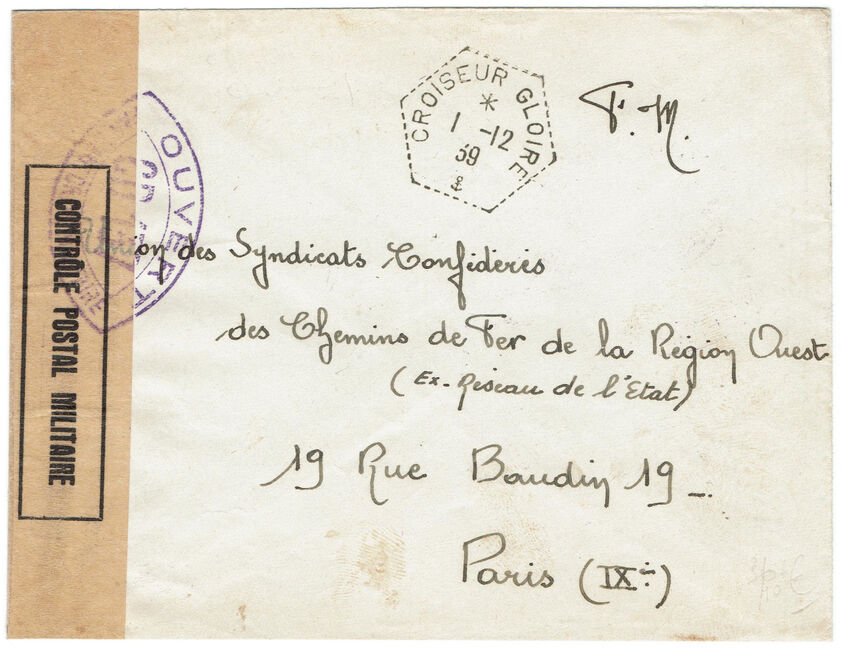 CROISEUR GLOIRE
*
1 -12
39
F.M.
OUVERT
CONTRÔLE POSTAL MILITAIRE
Union des Syndicats Confédérés
des Chemins de Fer de la Région Ouest
(Ex-Réseau de l'Etat)
19 Rue Baudin 19_
Paris (IXè)